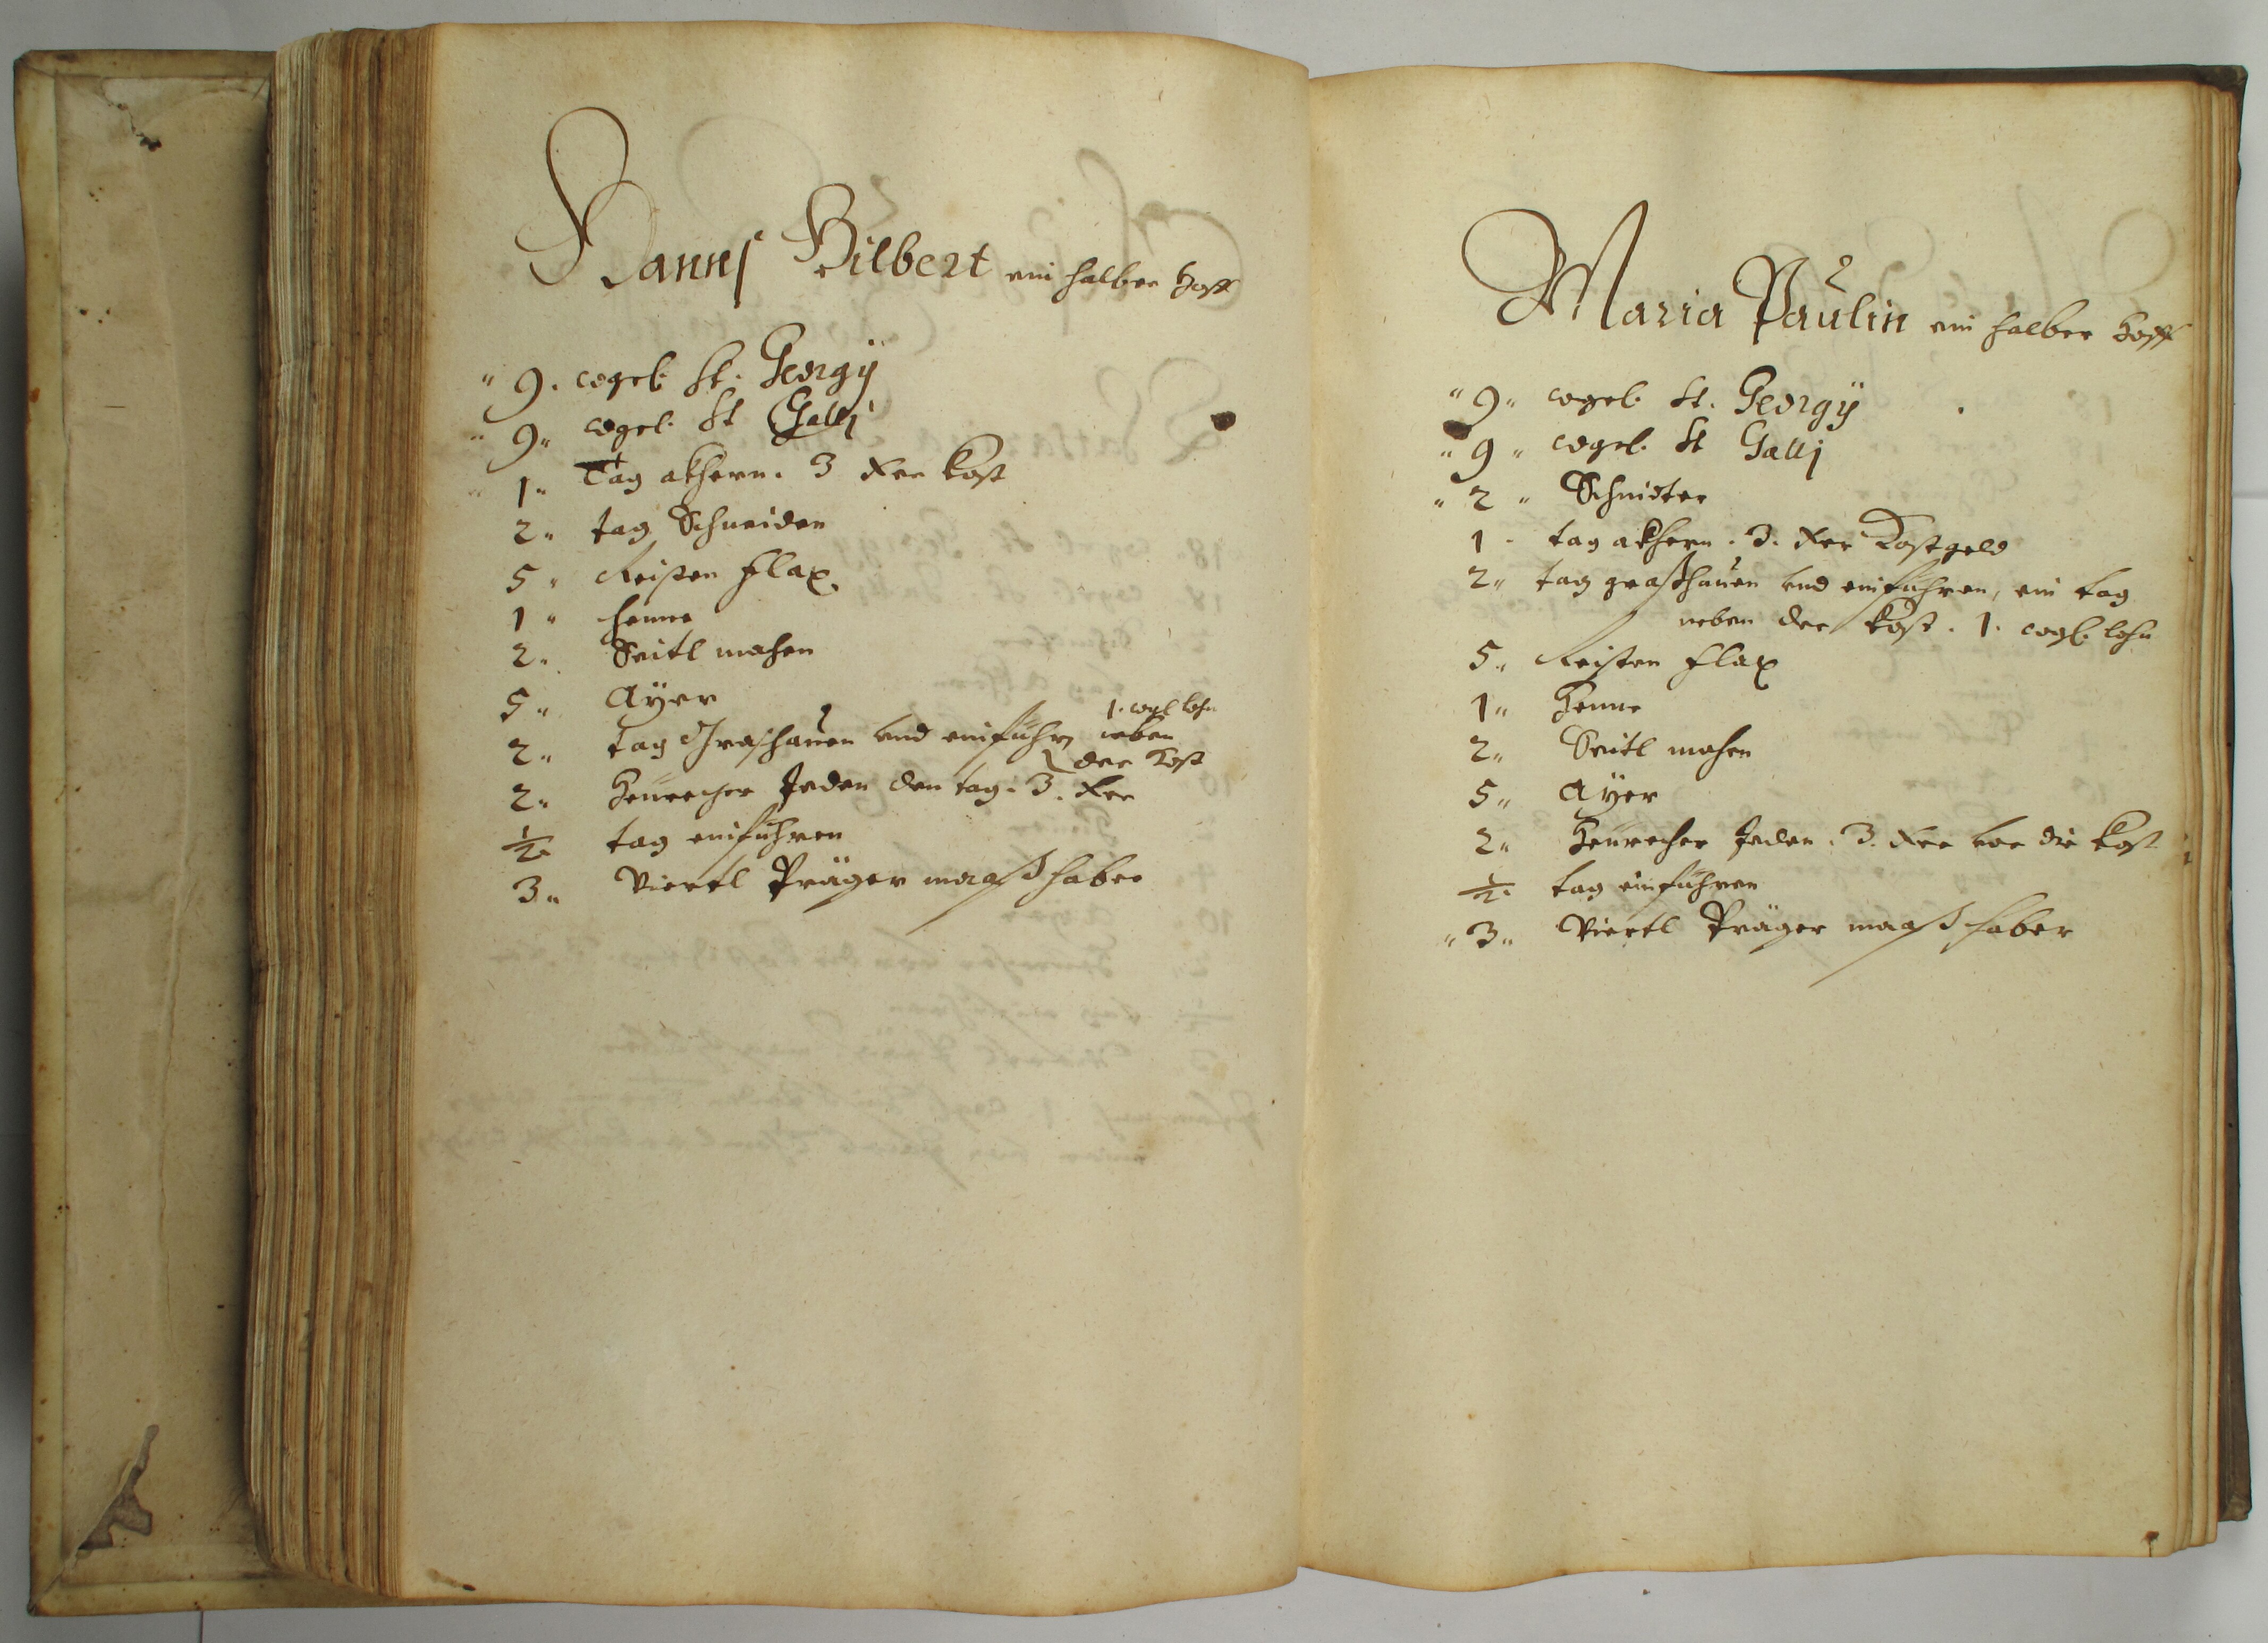 Hannß Hilbert ein halber Hoff
" 9. wgel. St. Georgÿ
" 9" wgel. St Gallj
" 1" Tag akhern. 3 Xer Kost
2" tag Schneiden
5" Reisten Flax.
1" henne
2" Seitl mahen
5" Ayer
1. wgl lohn
2" tag Graßhauen und einführn neben
der Kost
2" Heurecher Jeden den tag. 3. Xer
½ tag einführen
3" Viertl Präger maaß haber
Maria Paulin ein halber Hoff
" 9" wgel. St. Georgÿ
" 9" wgel. St Gallj
" 2" Schnidter
1" tag akhern. 3. Xer Kostgeld
2" tag graßhauen und einführen, ein tag
neben der Kost. 1. wgl. lohn
5" Reisten Flax
1" Henne
2" Seitl mahen
5" Ayer
2" Heurecher Jeden. 3. Xer vor die Kost
½ tag einführen
" 3" Viertl Präger maaß haber